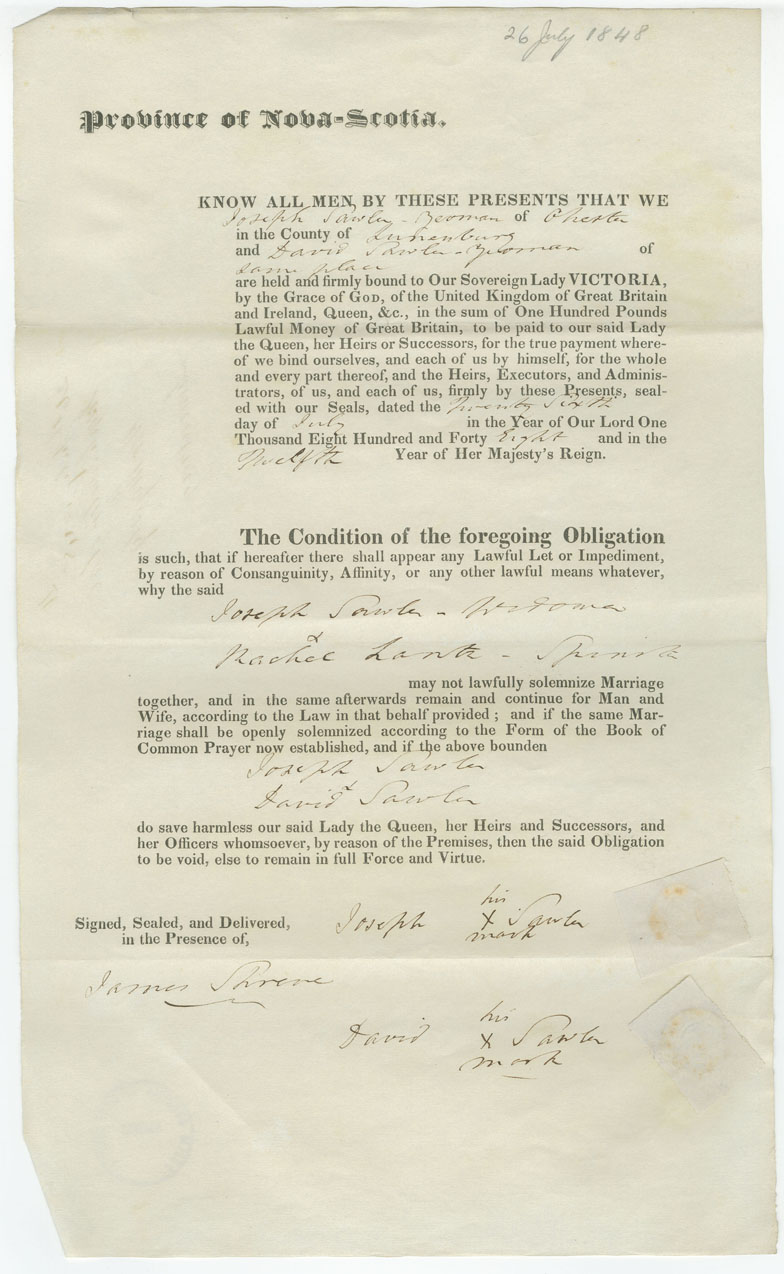 26 July 1848
Province of Nova-Scotia.
KNOW ALL MEN, BY THESE PRESENTS THAT WE
Joseph Sawler - Yeoman of Chester
in the County of Lunenburg
and David Sawler - Yeoman of
same place
are held and firmly bound to Our Sovereign Lady VICTORIA,
by the Grace of GOD, of the United Kingdom of Great Britain
and Ireland, Queen, &c., in the sum of One Hundred Pounds
Lawful Money of Great Britain, to be paid to our said Lady
the Queen, her Heirs or Successors, for the true payment where-
of we bind ourselves, and each of us by himself, for the whole
and every part thereof, and the Heirs, Executors, and Adminis-
trators, of us, and each of us, firmly by these Presents, seal-
ed with our Seals, dated the Twenty Sixth
day of July in the Year of Our Lord One
Thousand Eight Hundred and Forty Eight and in the
Twelfth Year of Her Majesty's Reign.
The Condition of the foregoing Obligation
is such, that if hereafter there shall appear any Lawful Let or Impediment,
by reason of Consanguinity, Affinity, or any other lawful means whatever,
why the said
Joseph Sawler - Widower
&
Rachel - Spinster
may not lawfully solemnize Marriage
together, and in the same afterwards remain and continue for Man and
Wife, according to the Law in that behalf provided ; and if the same Mar-
riage shall be openly solemnized according to the Form of the Book of
Common Prayer now established, and if the above bounden
Joseph Sawler
&
David Sawler
do save harmless our said Lady the Queen, her Heirs and Successors, and
her Officers whomsoever, by reason of the Premises, then the said Obligation
to be void, else to remain in full Force and Virtue.
Signed, Sealed, and Delivered,
in the Presence of,
James Shreve
his
Joseph X Sawler
mark
his
David X Sawler
mark